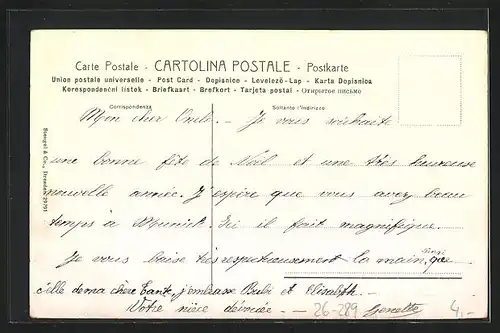 Carte Postale - CARTOLINA POSTALE - Postkarte
Union postale universelle - Post Card - Dopisnice - Levelező-Lap - Karta Dopisnica
Korespondenční lístek - Briefkaart - Brefkort - Tarjeta postal - Открытое письмо
Corrispondenza
Soltanto l'indirizzo
Stengel & Co., Dresden 29791
Mon cher Oncle. - Je vous souhaite
une bonne fête de Noël et une très heureuse
nouvelle année. J'espère que vous avez beau
temps à Munich. Ici il fait magnifique.
Je vous baise très respectueusement la main, ainsi que
celle de ma chère Tante, j'embrasse Bubi et Elisabeth. -
Votre nièce dévouée. -
26-289
4,-